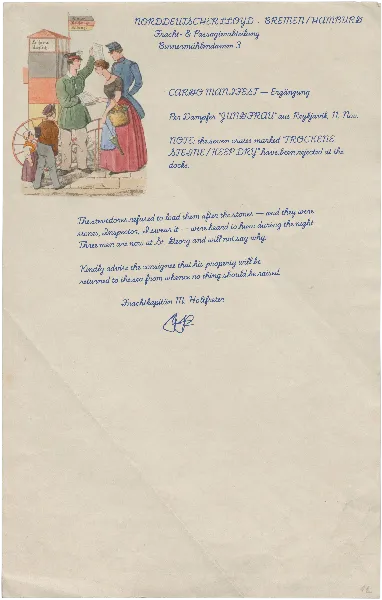 NORDDEUTSCHER LLOYD · BREMEN/HAMBURG
Fracht- & Passageabteilung
Binnenmühlendamm 3
CARGO MANIFEST — Ergänzung
Per Dampfer "JUNGFRAU" aus Reykjavík, 11. Nov.
NOTE: the seven crates marked "TROCKENE
STEINE / KEEP DRY" have been rejected at the
docks.
The stevedores refused to load them after the stones — and they were
stones, Inspector, I swear it — were heard to hum during the night.
Three men are now at St. Georg and will not say why.
Kindly advise the consignee that his property will be
returned to the sea from whence no thing should be raised.
Frachtkapitän M. Holtfreter